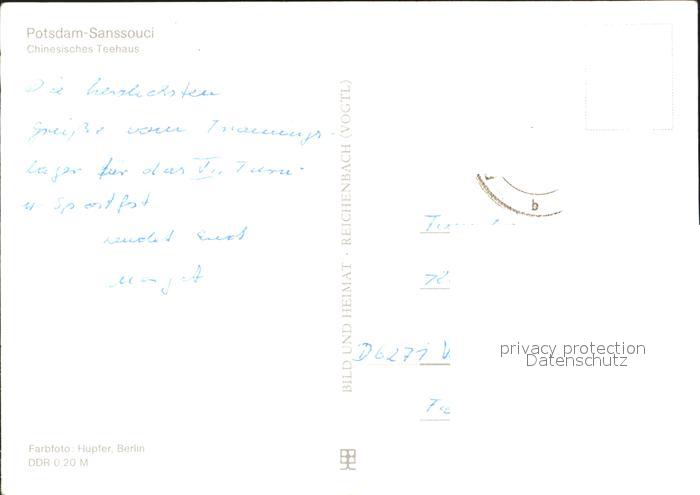 Potsdam-Sanssouci
Chinesisches Teehaus
Die herzlichsten
Grüße vom Trainings-
lager für das VI. Turn-
u Sportfest
sendet Euch
Margot
BILD UND HEIMAT · REICHENBACH (VOGTL)
b
D6271
privacy protection
Datenschutz
Farbfoto: Hupfer, Berlin
DDR 0,20 M